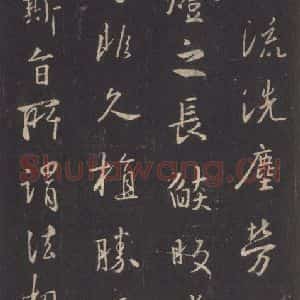 流洗塵勞
燈之長焰皎
非久植勝
斯旨所謂法相
Shufawang.CN